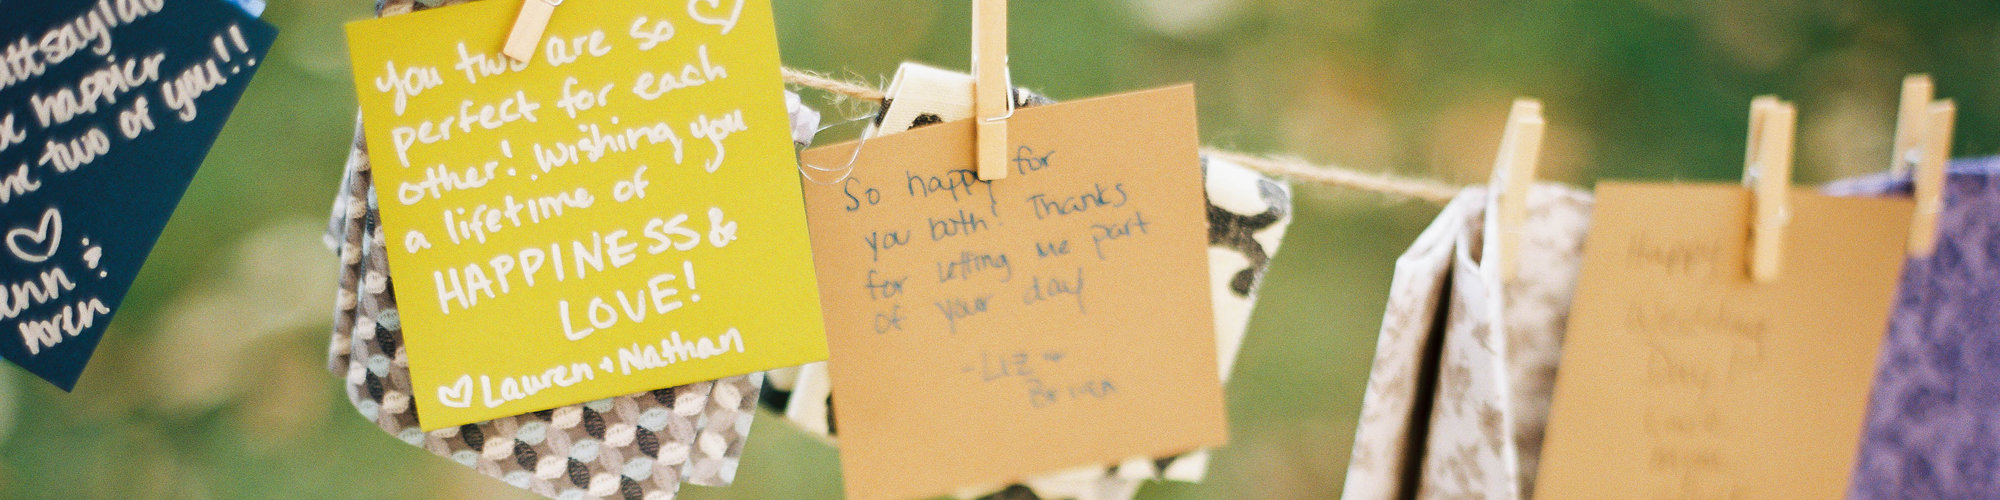 happier
two of you!!
you two are so ♡
perfect for each
other! Wishing you
a lifetime of
HAPPINESS &
LOVE!
♡ Lauren + Nathan
So happy for
you both! Thanks
for letting me part
of your day
-Liz +
Happy
Wedding
Day!